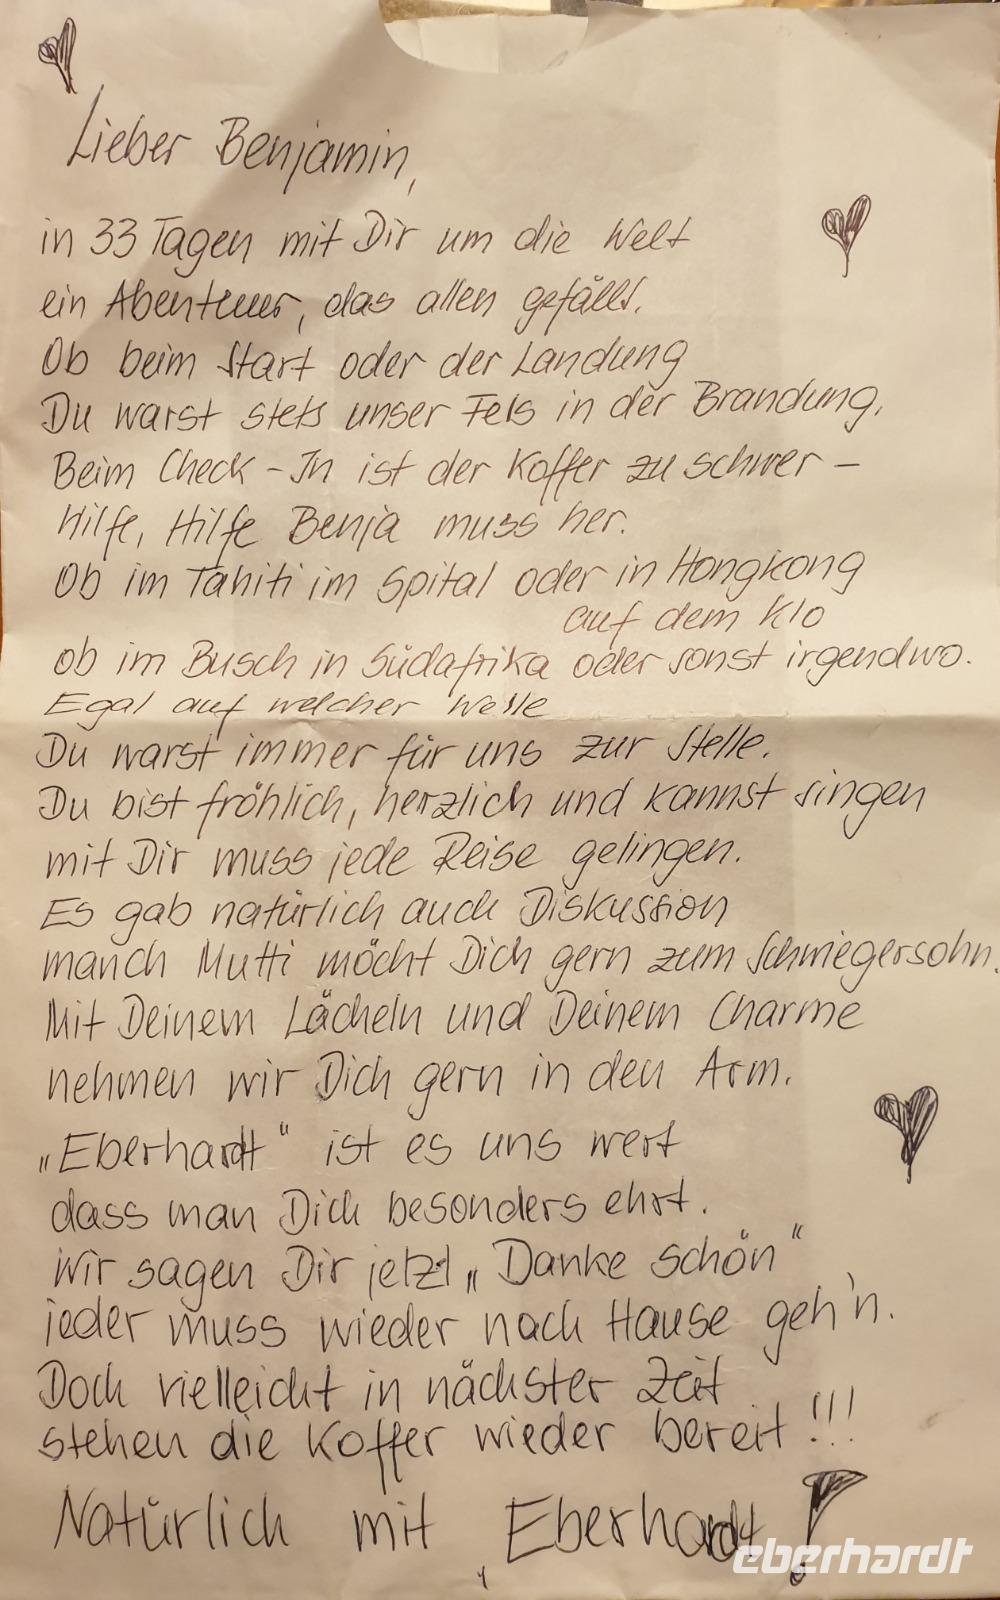 Lieber Benjamin,
in 33 Tagen mit Dir um die Welt
ein Abenteuer, das allen gefällt.
Ob beim Start oder der Landung
Du warst stets unser Fels in der Brandung.
Beim Check-In ist der Koffer zu schwer –
Hilfe, Hilfe Benja muss her.
Ob im Tahiti im Spital oder in Hongkong
auf dem Klo
ob im Busch in Südafrika oder sonst irgendwo.
Egal auf welcher Welle
Du warst immer für uns zur Stelle.
Du bist fröhlich, herzlich und kannst singen
mit Dir muss jede Reise gelingen.
Es gab natürlich auch Diskussion
manch Mutti möcht Dich gern zum Schwiegersohn.
Mit Deinem Lächeln und Deinem Charme
nehmen wir Dich gern in den Arm.
„Eberhardt“ ist es uns wert
dass man Dich besonders ehrt.
Wir sagen Dir jetzt „Danke schön“
jeder muss wieder nach Hause geh'n.
Doch vielleicht in nächster Zeit
stehen die Koffer wieder bereit!!!
Natürlich mit Eberhardt!
eberhardt